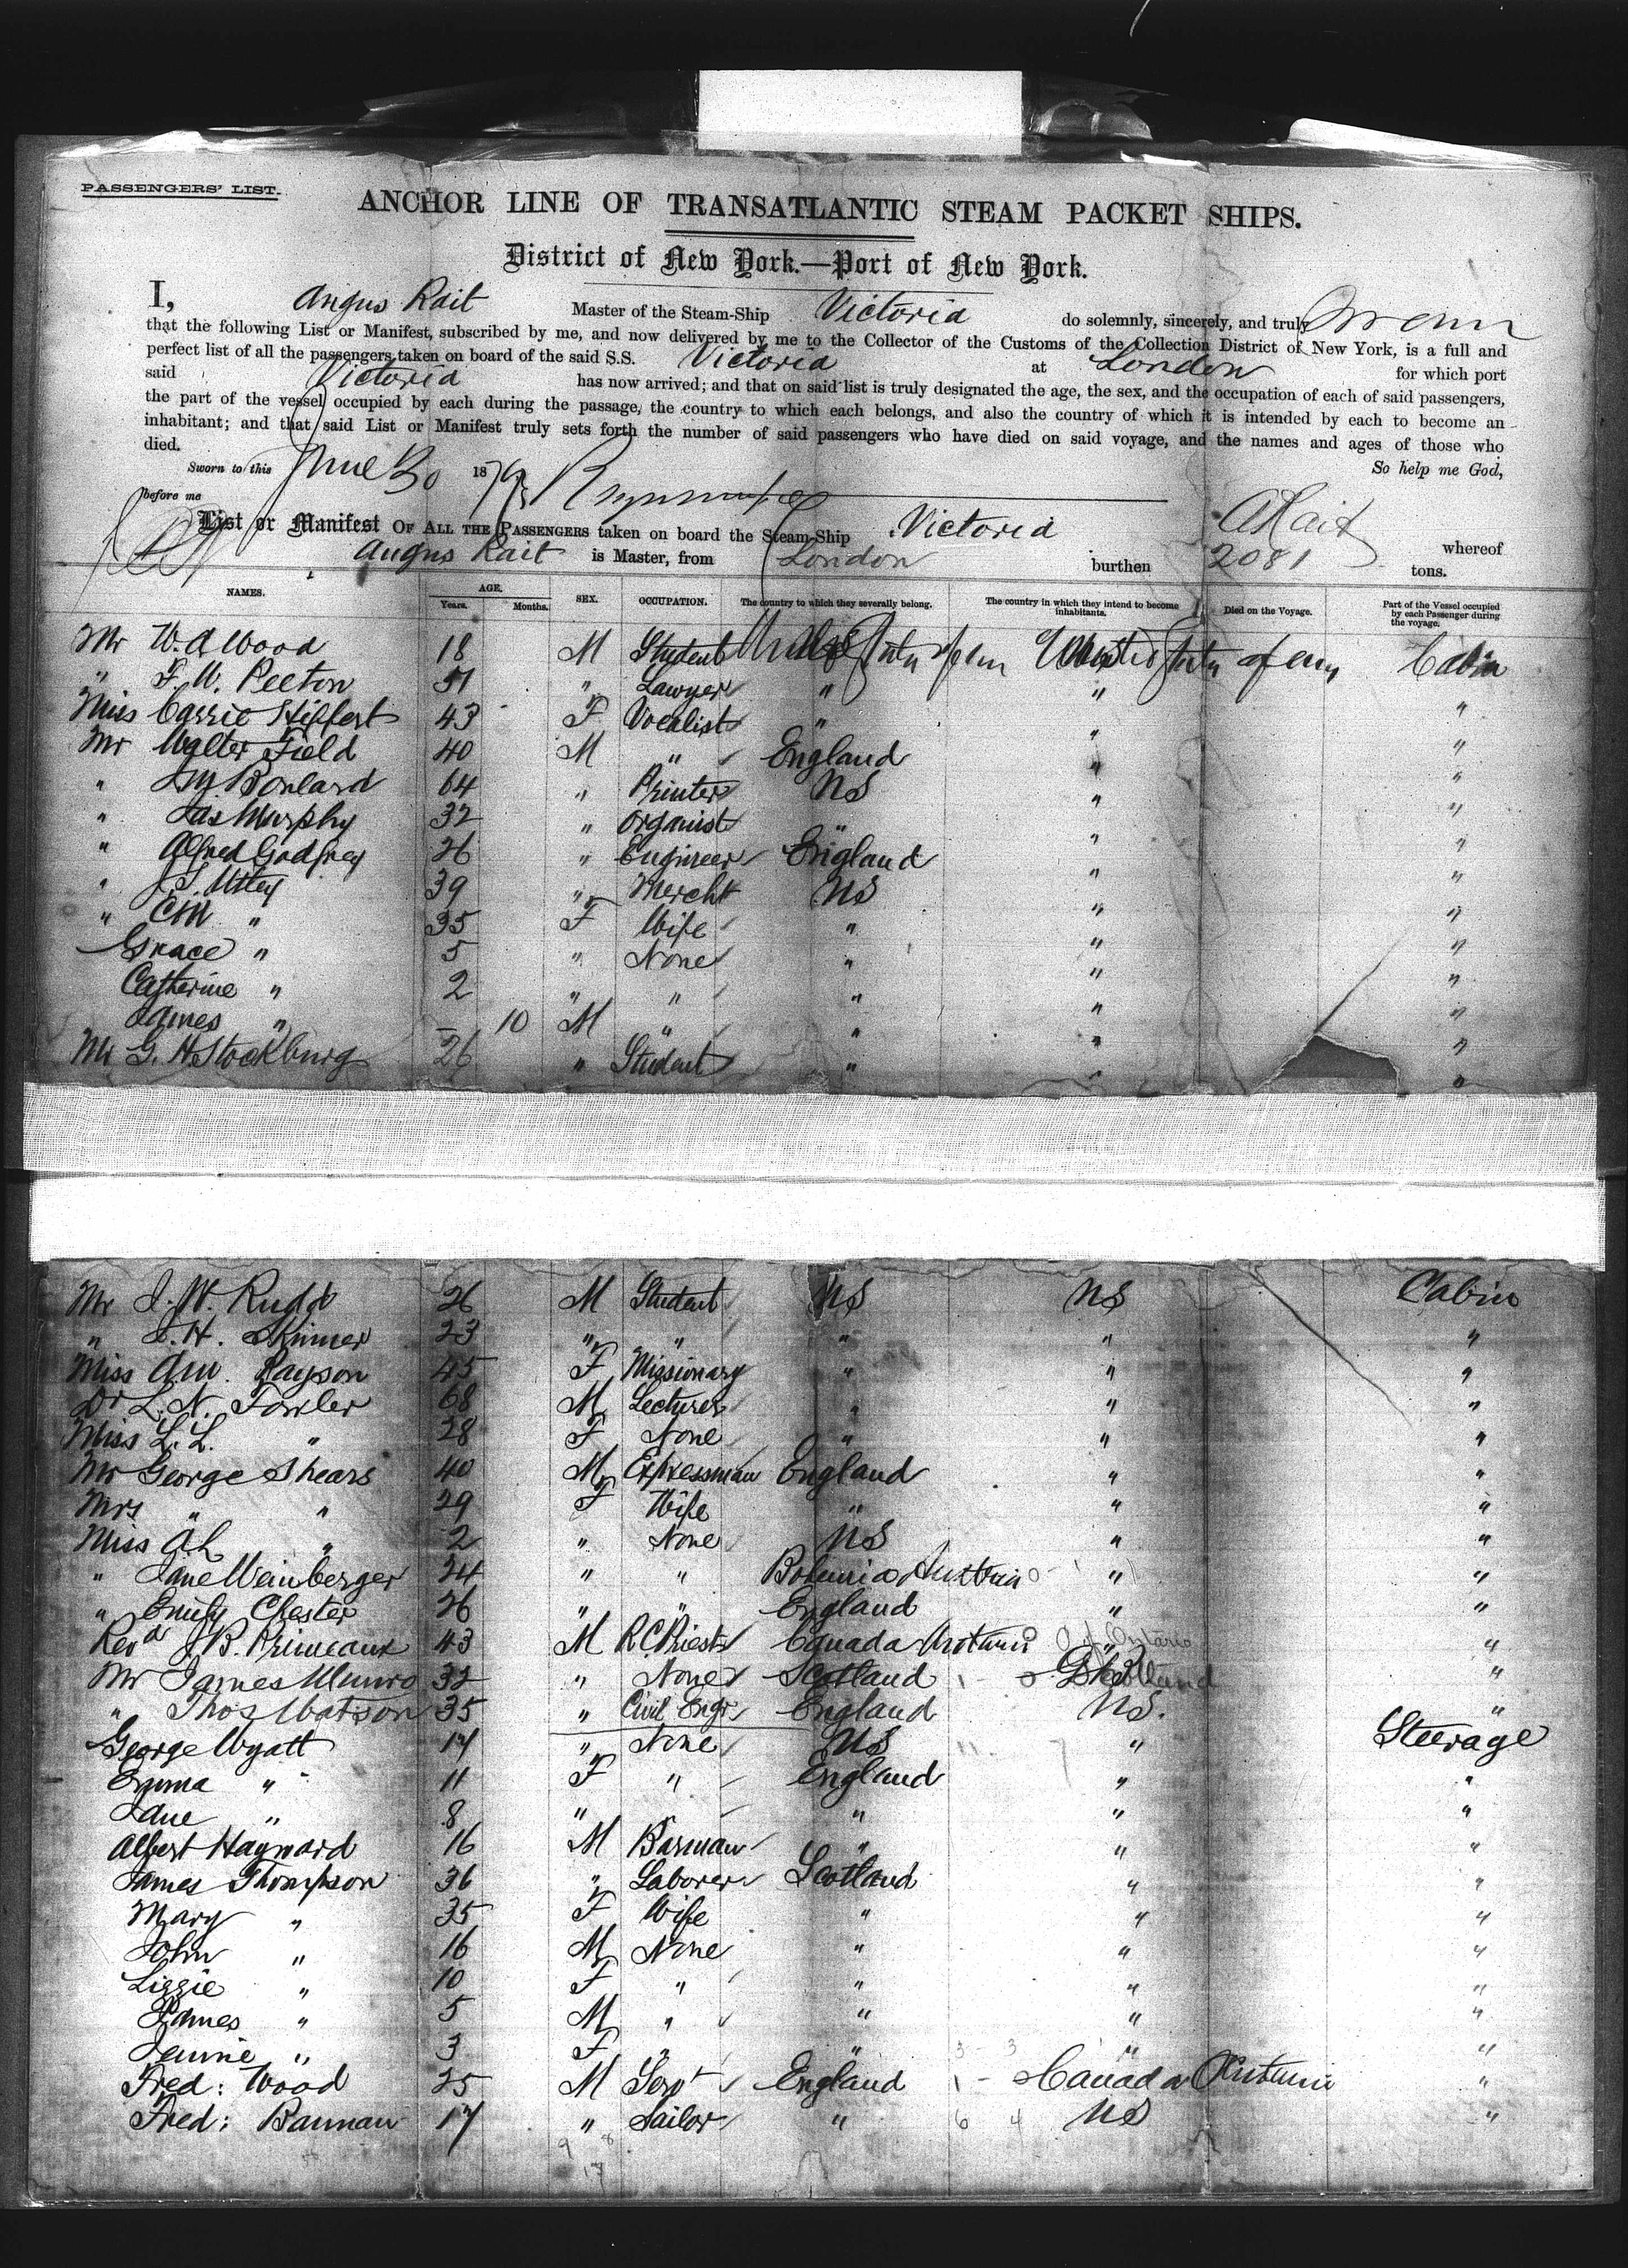 PASSENGERS' LIST.
ANCHOR LINE OF TRANSATLANTIC STEAM PACKET SHIPS.
District of New York.—Port of New York.
I, Angus Rait Master of the Steam-Ship Victoria do solemnly, sincerely, and truly swear
that the following List or Manifest, subscribed by me, and now delivered by me to the Collector of the Customs of the Collection District of New York, is a full and
perfect list of all the passengers taken on board of the said S.S. Victoria at London for which port
said Victoria has now arrived; and that on said list is truly designated the age, the sex, and the occupation of each of said passengers,
the part of the vessel occupied by each during the passage, the country to which each belongs, and also the country of which it is intended by each to become an
inhabitant; and that said List or Manifest truly sets forth the number of said passengers who have died on said voyage, and the names and ages of those who
died.
So help me God,
Sworn to this June 30 1879
before me
A Rait
List or Manifest OF ALL THE PASSENGERS taken on board the Steam-Ship Victoria whereof
Angus Rait is Master, from London burthen 2081 tons.
NAMES. AGE. Years. Months. SEX. OCCUPATION. The country to which they severally belong. The country in which they intend to become inhabitants. Died on the Voyage. Part of the Vessel occupied by each Passenger during the voyage.
Mr W. A Wood 18 M Student United States of Am United States of Am Cabin
" F. W. Peeton 51 " Lawyer " " "
Miss Carrie 43 F Vocalist " " "
Mr Walter Field 40 M " England " "
" 64 " Printer US " "
" Jas Murphy 32 " Organist " " "
" Alfred Godfrey 26 " Engineer England " "
" J. S. Utley 39 " Mercht US " "
" C M " 35 F Wife " " "
Grace " 5 " None " " "
Catherine " 2 " " " " "
James " – 10 M " " " "
Mr G. H. Stockburg 26 " Student " " "
Mr J. W. Rudd 26 M Student US US Cabin
" J. H. Skinner 23 " " " " "
Miss A M. Payson 45 F Missionary " " "
Dr L. N. Fowler 68 M Lecturer " " "
Miss L. L. " 28 F None " " "
Mr George Shears 40 M Expressman England " "
Mrs " " 29 F Wife " " "
Miss A L " 2 " None US " "
" Jane Weinberger 24 " " Bohemia Austria " "
" Emily Chester 26 " " England " "
Revd J. B. Primeaux 43 M R.C. Priest Canada Ontario " "
Mr James Munro 32 " None Scotland Scotland "
" Thos Watson 35 " Civil Engr England US. "
George Wyatt 14 " None US " Steerage
Emma " 11 F " England " "
Jane " 8 " " " "
Albert Hayward 16 M Barman " " "
James Thompson 36 " Laborer Scotland " "
Mary " 35 F Wife " " "
John " 16 M None " " "
Lizzie " 10 F " " " "
James " 5 M " " " "
Jennie " 3 F " " " "
Fred: Wood 25 M Servt England Canada Ontario "
Fred: Bannan 17 " Sailor " US "